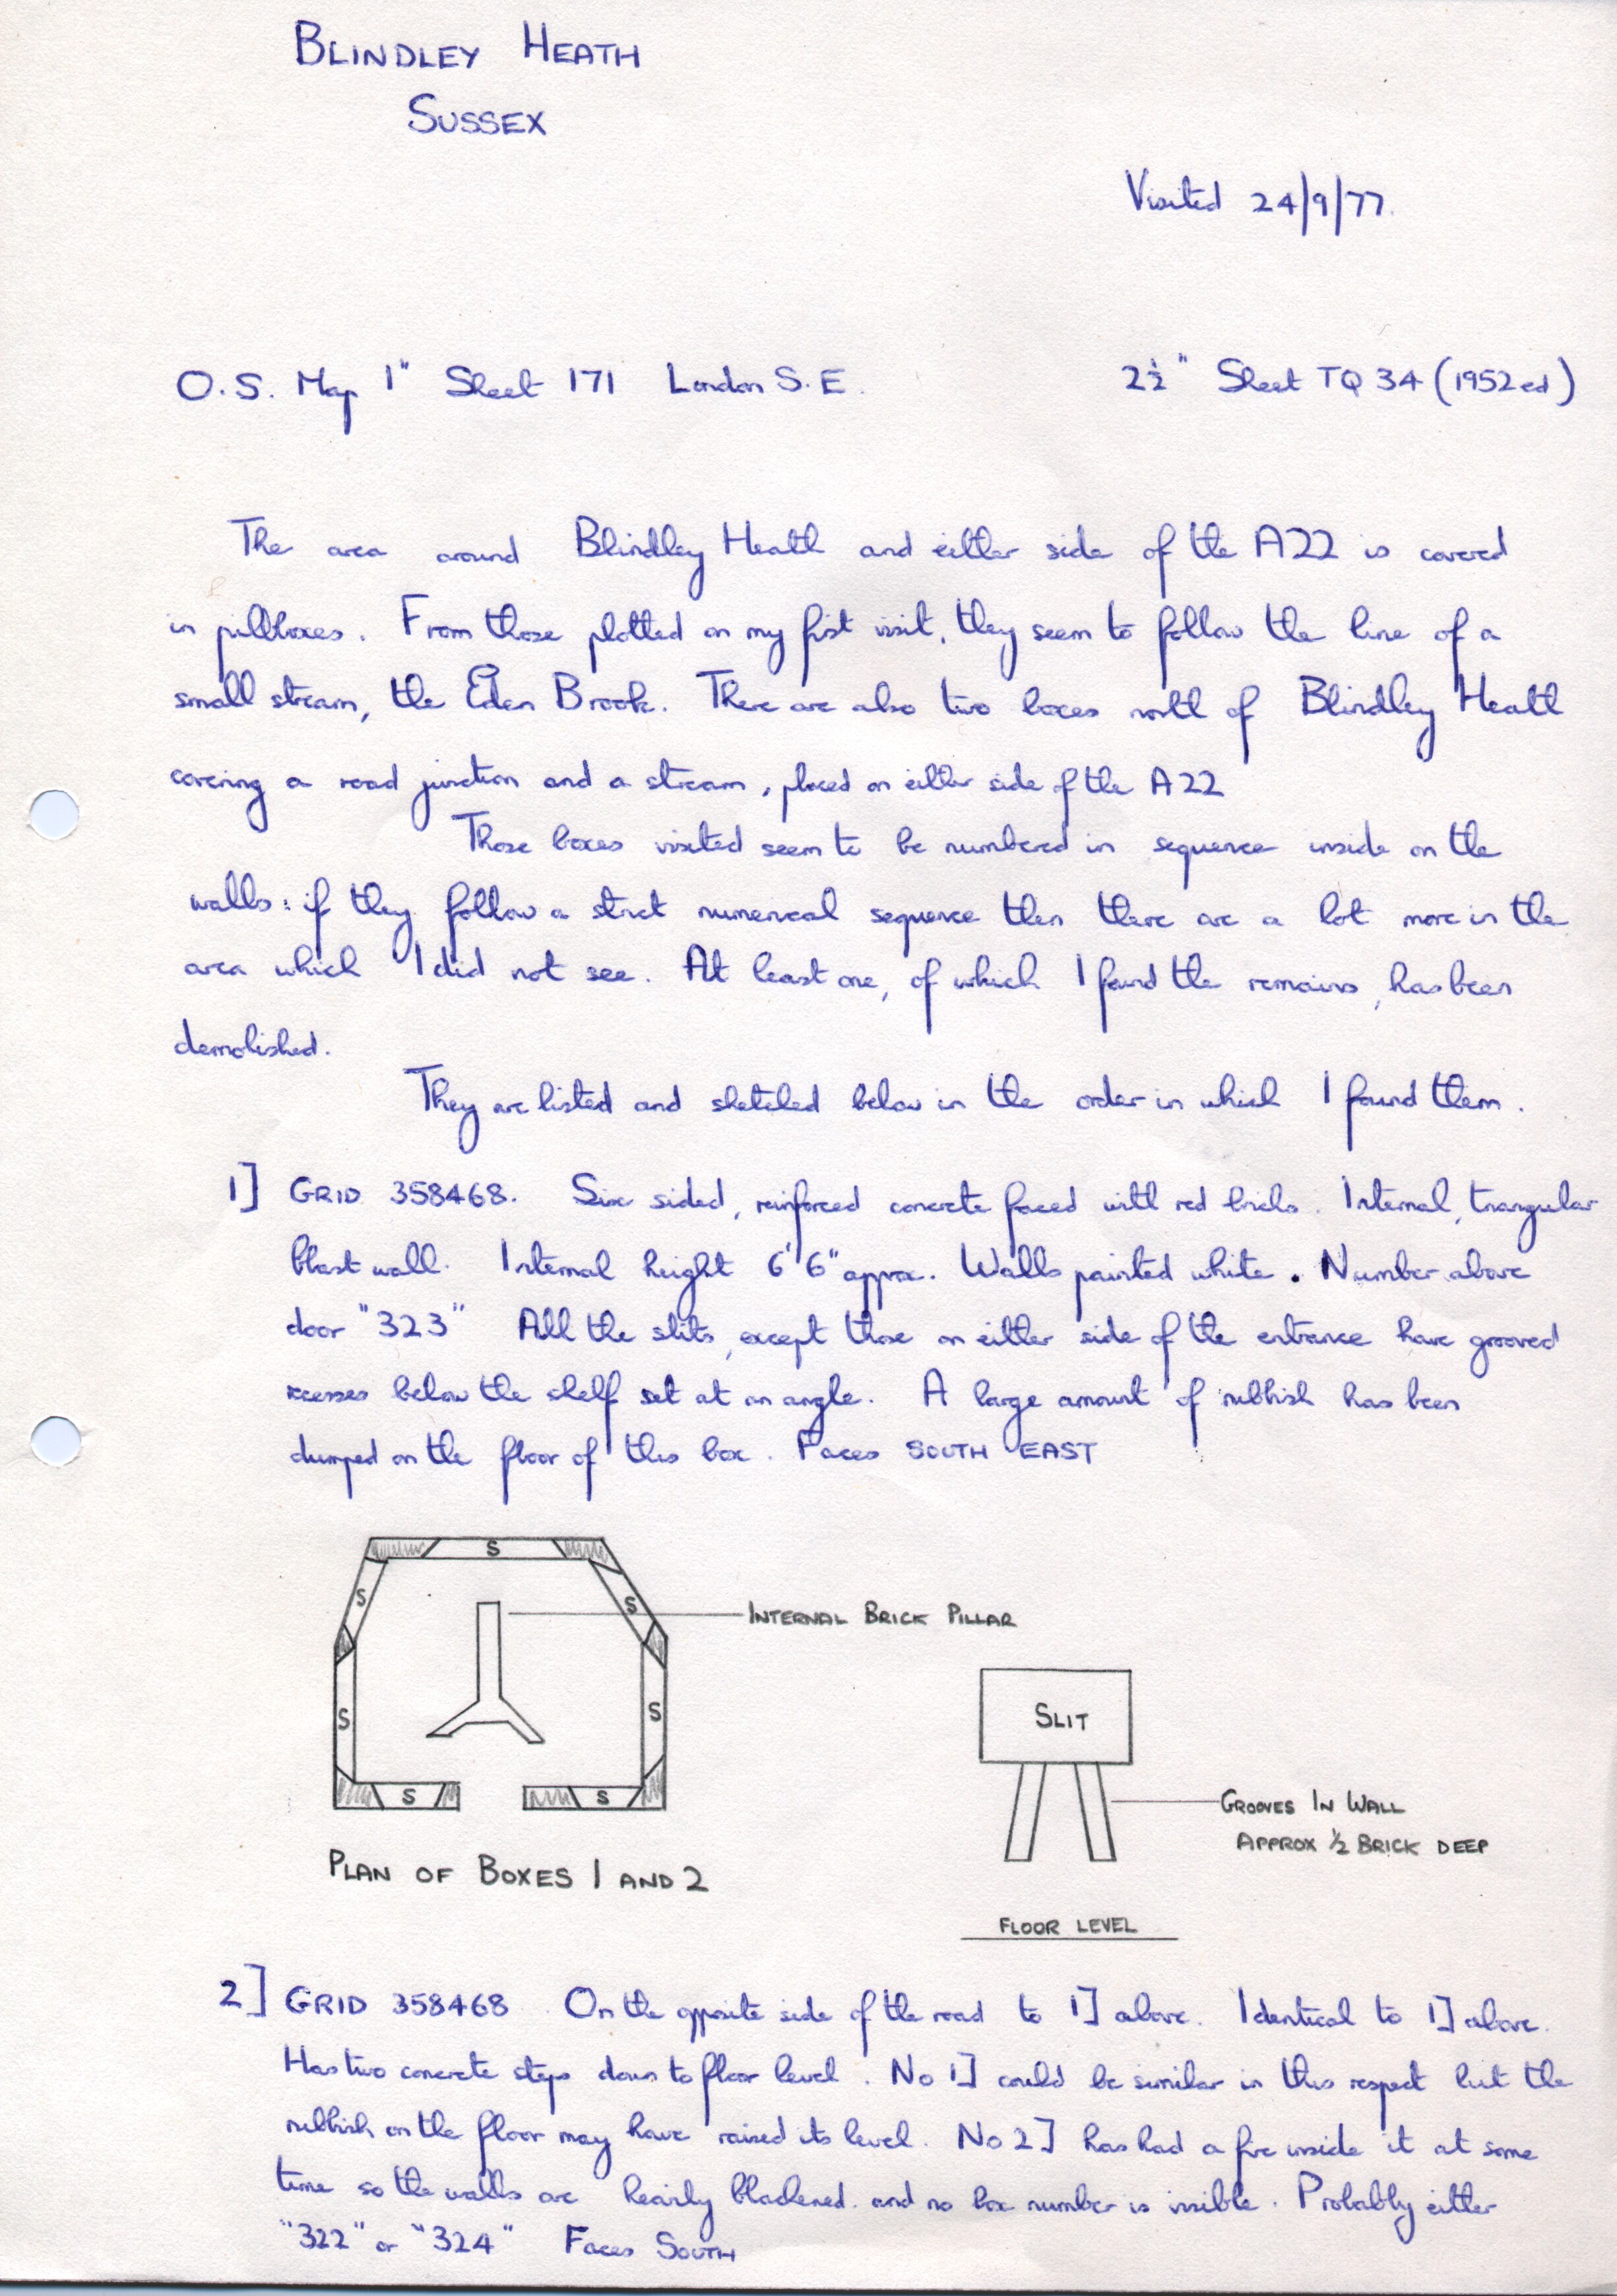 BLINDLEY HEATH
SUSSEX
Visited 24/9/77.
O.S. Map 1" Sheet 171 London S.E. 2½" Sheet TQ 34 (1952 ed)
The area around Blindley Heath and either side of the A22 is covered
in pillboxes. From those plotted on my first visit, they seem to follow the line of a
small stream, the Eden Brook. There are also two boxes north of Blindley Heath
covering a road junction and a stream, placed on either side of the A22
Those boxes visited seem to be numbered in sequence inside on the
walls: if they follow a strict numerical sequence then there are a lot more in the
area which I did not see. At least one, of which I found the remains, has been
demolished.
They are listed and sketched below in the order in which I found them.
1] GRID 358468. Six sided, reinforced concrete faced with red bricks. Internal, triangular
blast wall. Internal height 6'6" approx. Walls painted white. Number above
door "323" All the slits, except those on either side of the entrance have grooved
recesses below the shelf set at an angle. A large amount of rubbish has been
dumped on the floor of this box. Faces SOUTH EAST
S
S S
INTERNAL BRICK PILLAR
S S
SLIT
S S
GROOVES IN WALL
APPROX ½ BRICK DEEP
PLAN OF BOXES 1 AND 2
FLOOR LEVEL
2] GRID 358468 On the opposite side of the road to 1] above. Identical to 1] above.
Has two concrete steps down to floor level. No 1] could be similar in this respect but the
rubbish on the floor may have raised its level. No 2] has had a fire inside it at some
time so the walls are heavily blackened and no box number is visible. Probably either
"322" or "324" Faces SOUTH